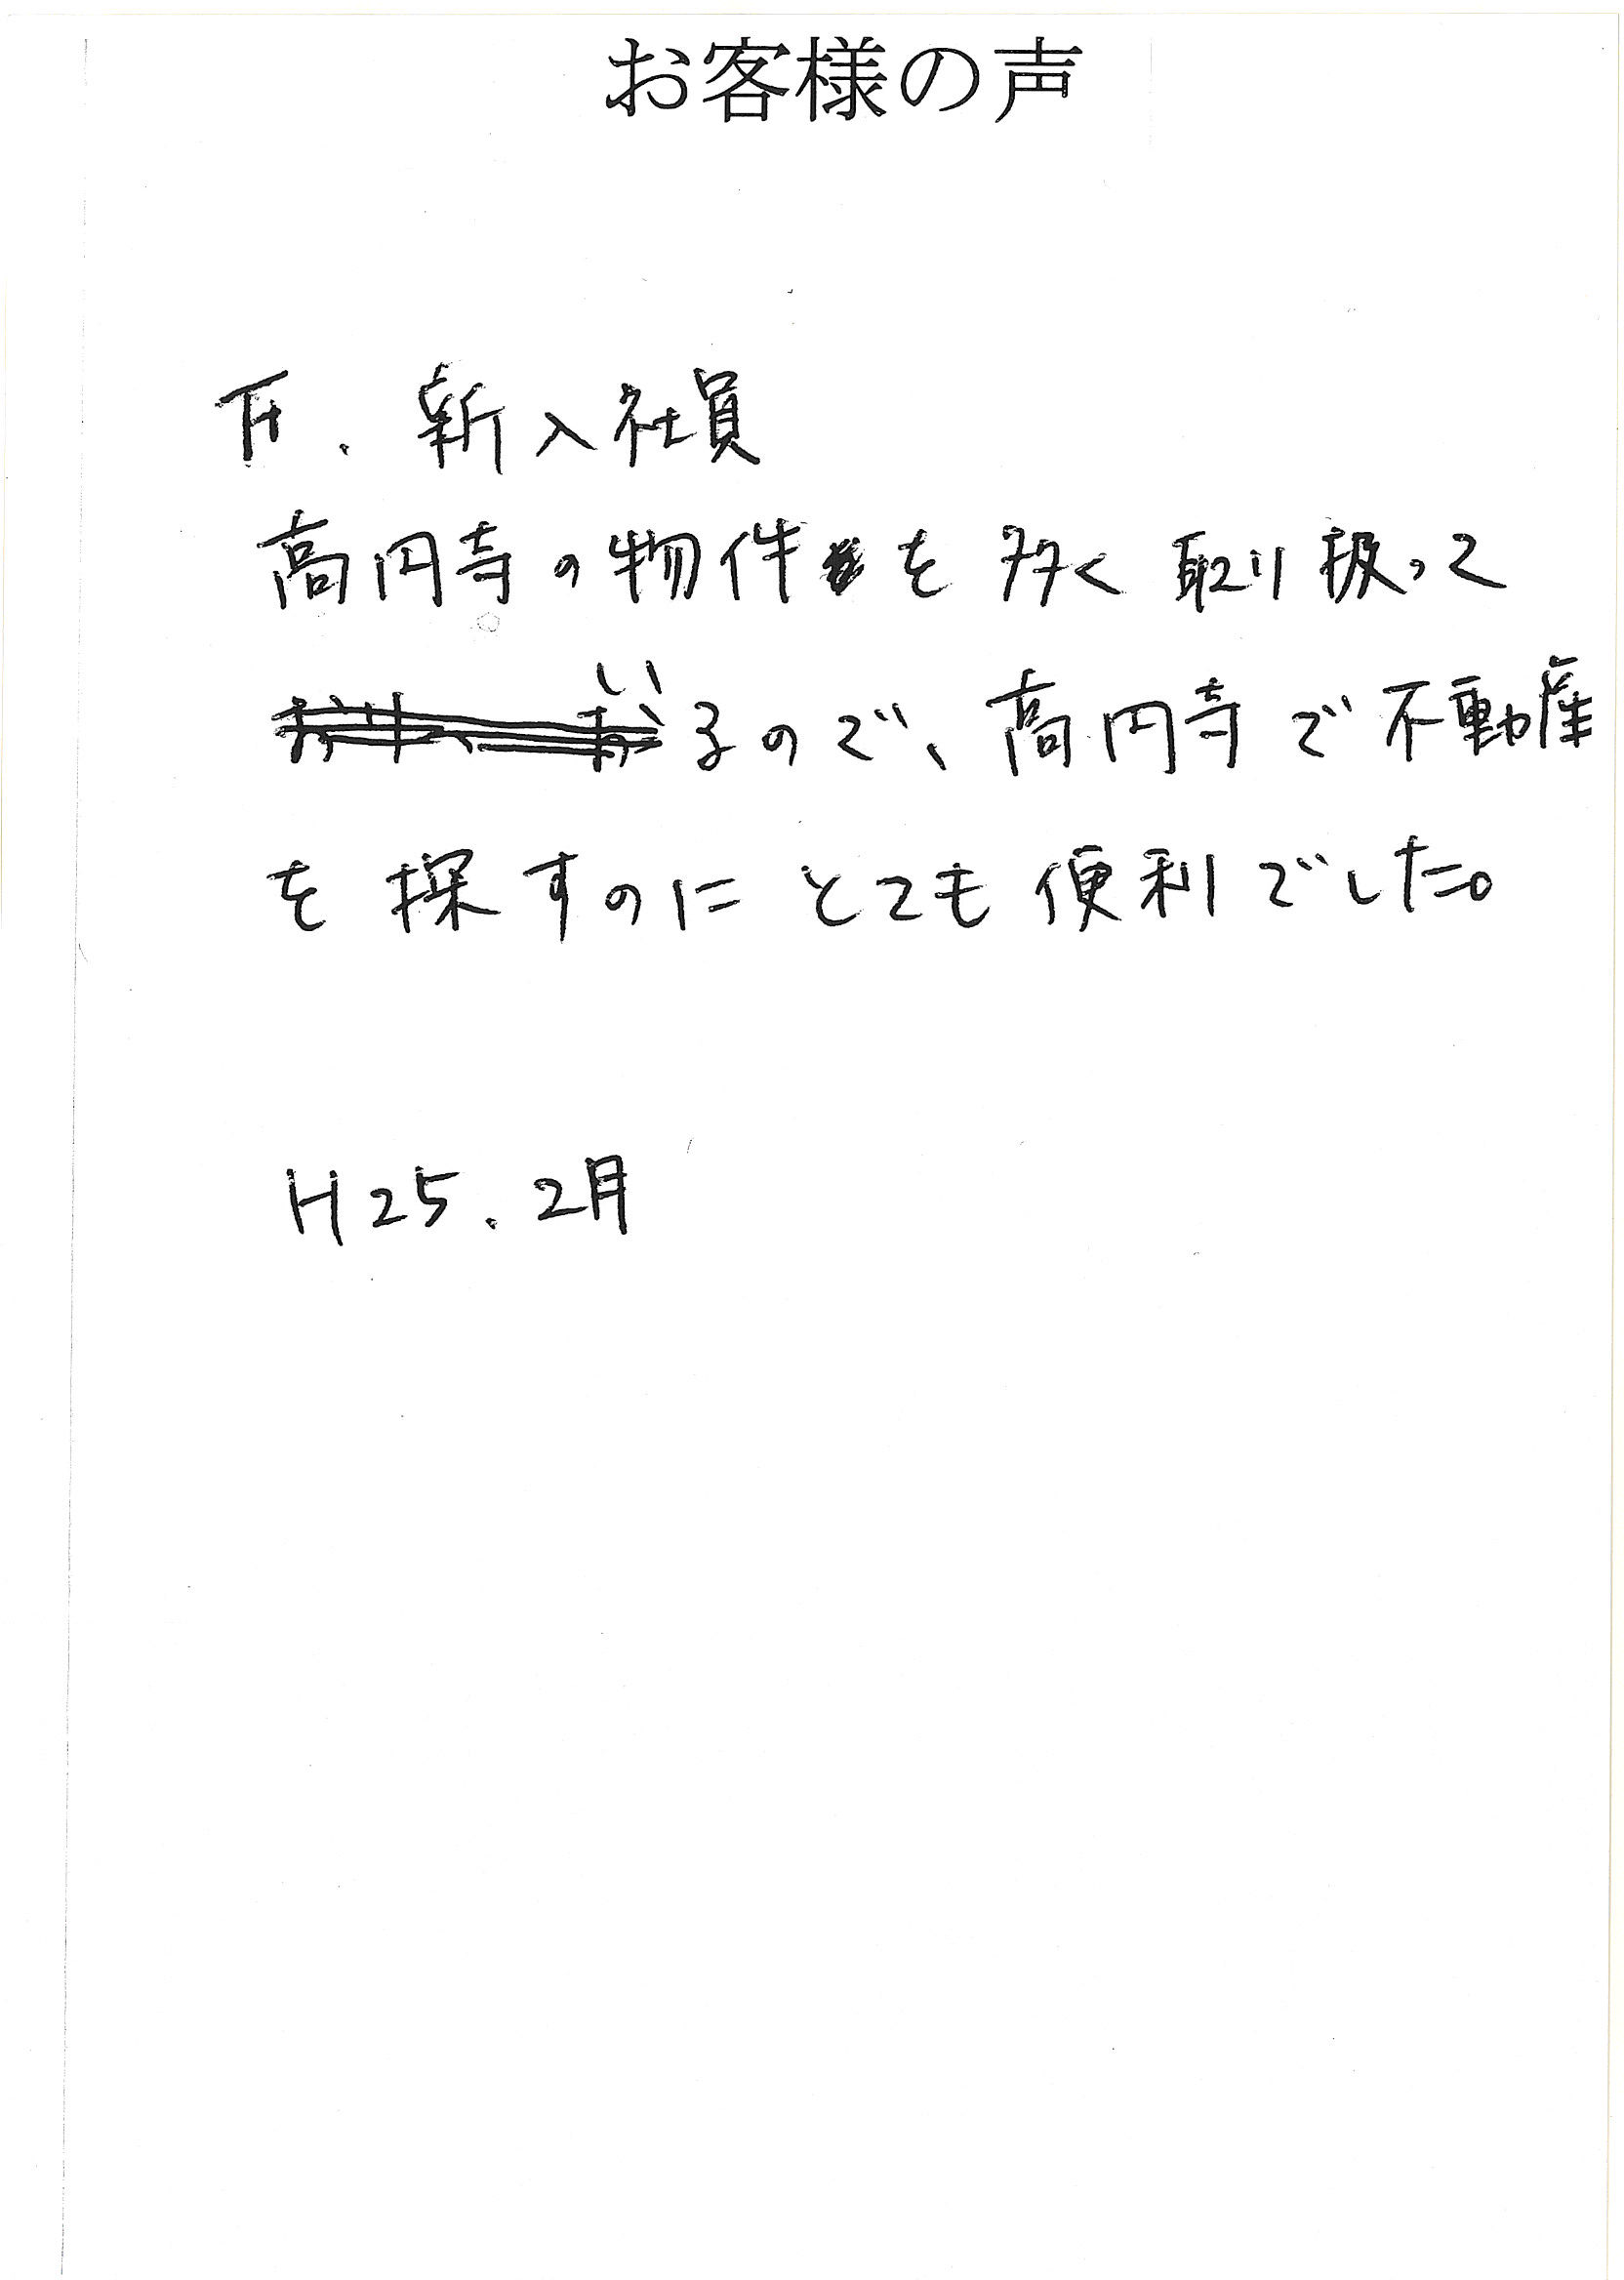 お客様の声
F. 新入社員
高円寺の物件を多く取り扱って
いるので、高円寺で不動産
を探すのにとても便利でした。
H25.2月